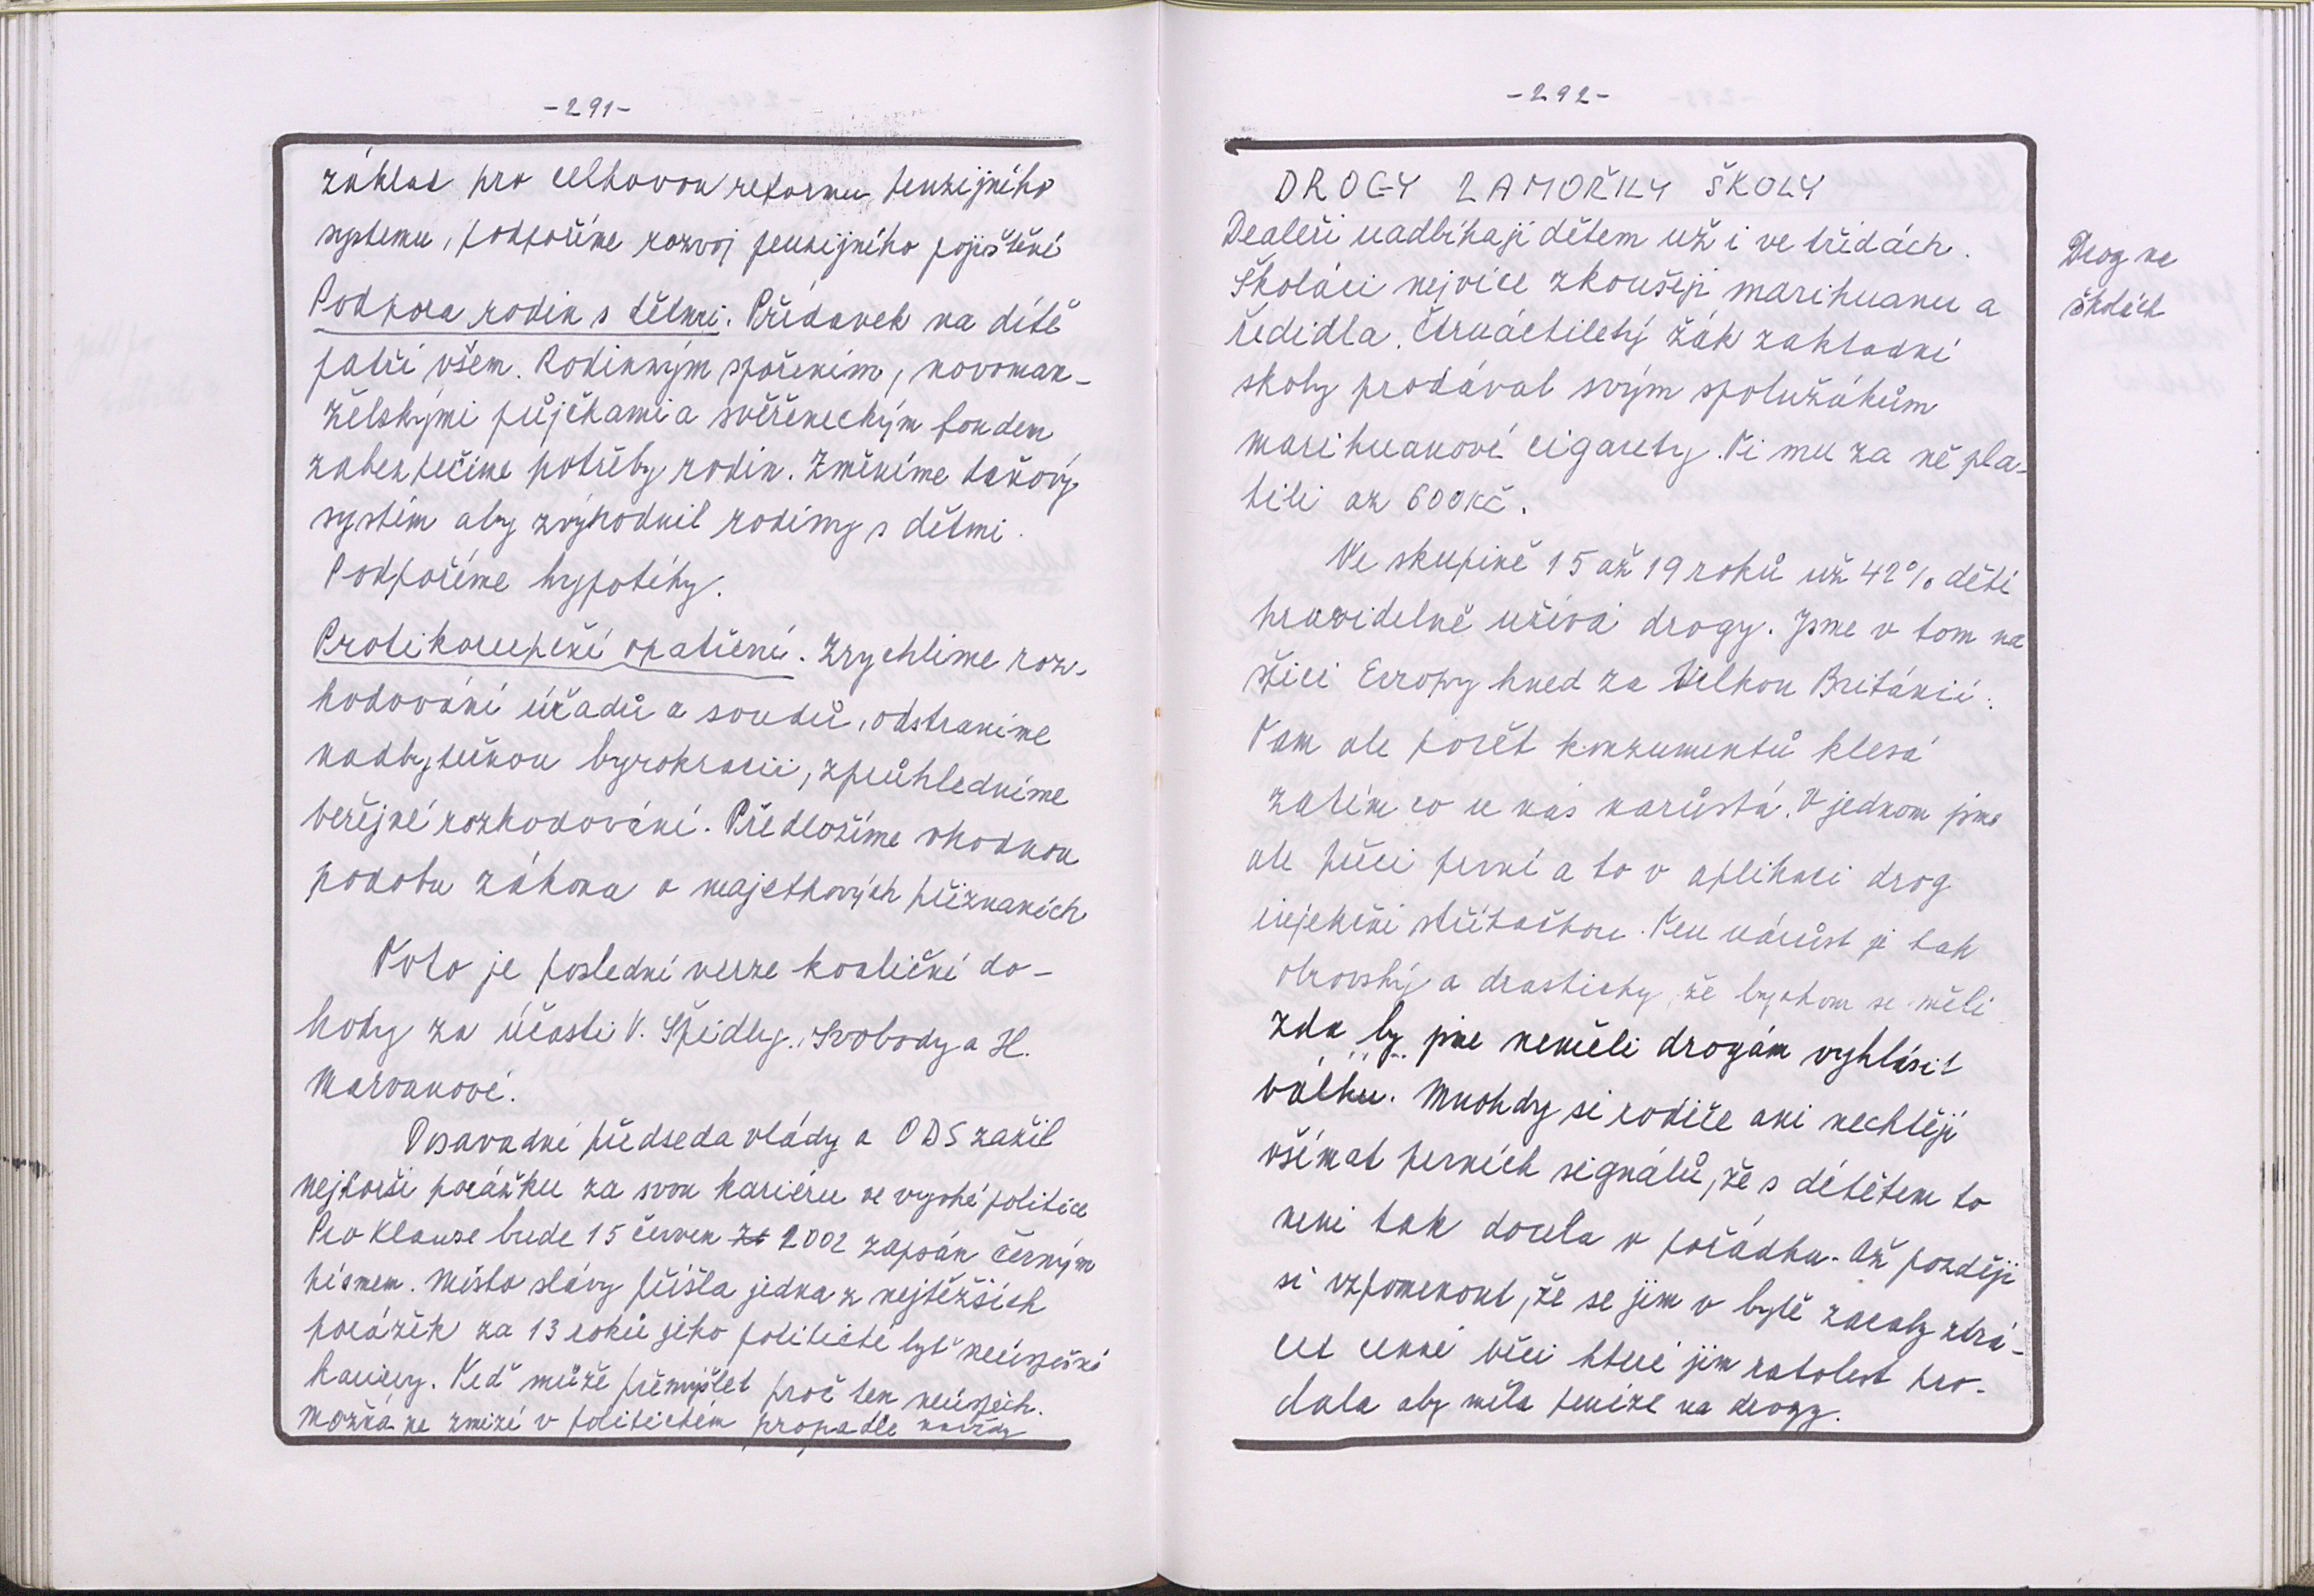 -291-
základ pro celkovou reformu penzijního
systemu, podpoříme rozvoj penzijního pojištění
Podpora rodin s dětmi. Přídavek na dítě
patří všem. Rodinným spořením, novoman-
želskými půjčkami a svěřeneckým fondem
zabezpečíme potřeby rodin. Změníme daňový
systém aby zvýhodnil rodiny s dětmi.
Podpoříme hypotéky.
Protikorupční opatření. Zrychlíme roz-
hodování úřadů a soudů, odstraníme
nadbytečnou byrokracii, zprůhledníme
veřejné rozhodování. Předložíme vhodnou
podobu zákona o majetkových přiznaních
Toto je poslední verze koaliční do-
hody za účasti V. Špidly, Svobody a H.
Marvanové.
Dosavadní předseda vlády a ODS zažil
nejhorši porážku za svou kariéru ve vysoké politice
Pro Klause bude 15 červen 2002 zapsán černým
písmem. Místo slávy přišla jedna z nejtěžších
porážek za 13 roků jeho politické byť neúspěšné
kariery. Teď může přemýšlet proč ten neúspěch.
Možná ne zmizí v politickém propadle navždy
-292-
DROGY ZAMOŘILY ŠKOLY
Dealeři nadbíhají dětem už i ve třídách.
Školáci nejvíce zkoušejí marihuanu a
ředidla. Čtrnáctiletý žák zakladní
skoly prodával svým spolužákům
marihuanové cigarety. Ti mu za ně pla-
tili az 600Kč.
Ve skupině 15 až 19 roků už 42% dětí
pravidelně užívá drogy. Jsme v tom na
špici Evropy hned za Velkou Británií.
Tam ale počet konzumentů klesá
zatím co u nás narůstá. V jednom jsme
ale přeci první a to v aplikaci drog
injekční stříkačkou. Ten nárůst je tak
obrovský a drasticky, že bychom se měli
zda by jsme neměli drogám vyhlásit
válku. Mnohdy si rodiče ani nechtějí
všímat prvních signálů, že s dítětem to
neni tak docela v pořádku. Až později
si vzpomenout, že se jim v bytě začaly ztrá-
cet cenné věci které jim ratolest pro-
dala aby měla peníze na drogy.
Drog na
školách